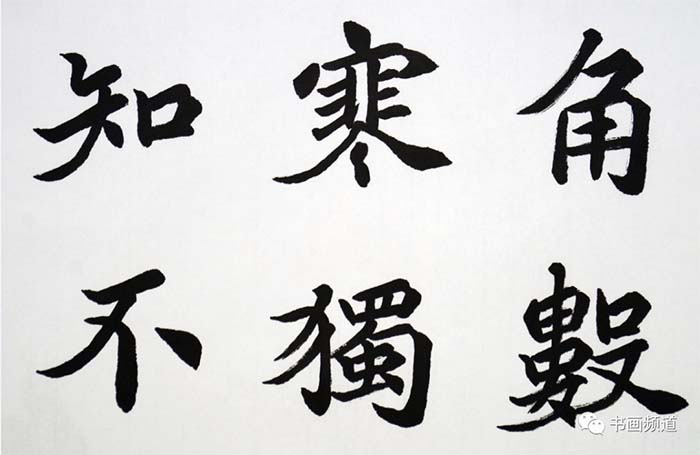 角數
寒獨
知不
书画频道